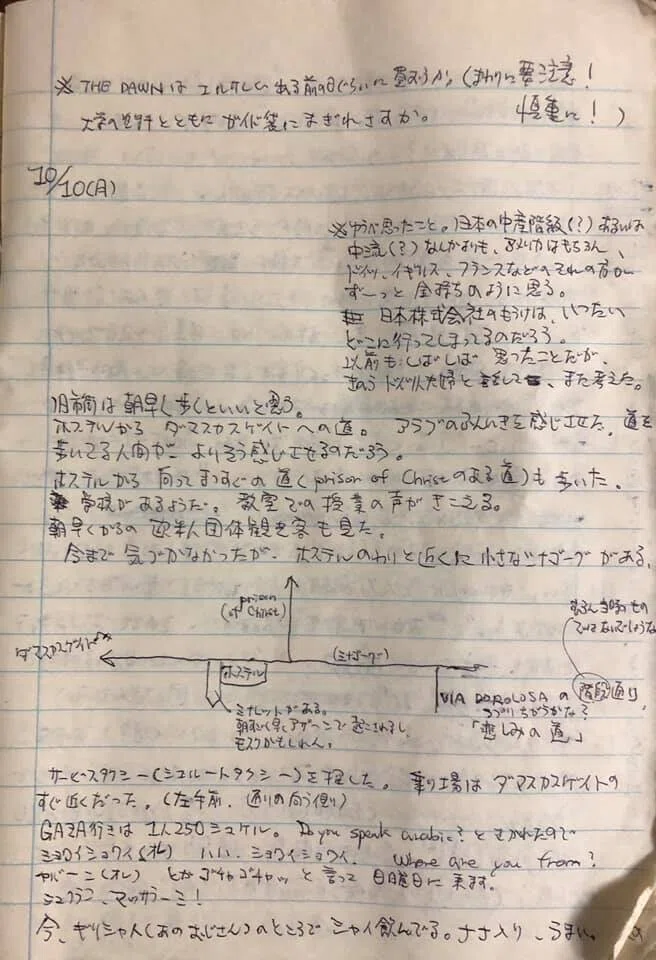 ※ THE DAWN は エルサレム出る前の日ぐらいに買おうか (まわりに要注意!
慎重に!)
大学の とともに ガイド袋にまぎれさすか。
10/10(月)
※ゆうべ思ったこと。日本の中産階級(?)あるいは
中流(?)なんかよりも、アメリカはもちろん、
ドイツ、イギリス、フランスなどのそれの方が
ずーっと金持ちのように思える。
日本株式会社のもうけは、いったい
どこに行ってしまってるのだろう。
以前もしばしば思ったことだが、
きのうドイツ人夫婦と話して、また考えた。
旧市街は朝早く歩くといいと思う。
ホステルから ダマスカスゲイトへの道。アラブのふんいきを感じさせた。道を
歩いてる人間が よりそう感じさせるのだろう。
ホステルから向ってまっすぐの道(prison of Christのある道)も歩いた。
学校があるようだ。教室での授業の声がきこえる。
朝早くからの欧米人団体観光客も見た。
今まで気づかなかったが、ホステルのわりと近くに小さなシナゴーグがある。
prison
(of Christ)
もちろん当時のもの
ではないでしょうな
ダマスカスゲイトへ
ホステル
(シナゴーグ)
ミナレットがある。
朝早くアザーンで起こされるし、
モスクかもしれん。
VIA DOROLOSA の 階段通り
ちがうかな?
「悲しみの道」
サービスタクシー(シェルートタクシー)を探した。乗り場はダマスカスゲイトの
すぐ近くだった。(左手前、通りの向う側)
GAZA行きは1人250シュケル。Do you speak arabic?ときかれたので
ショワイショワイ(オレ) ハハ、ショワイショワイ。 Where are you from?
ヤバーニ(オレ) とかゴチャゴチャッと言って 日曜日に来ます。
シュクラン、マッサラーミ!
今、ギリシャ人(あのおじさん)のところでシャイ飲んでる。ナナ入り、うまい。